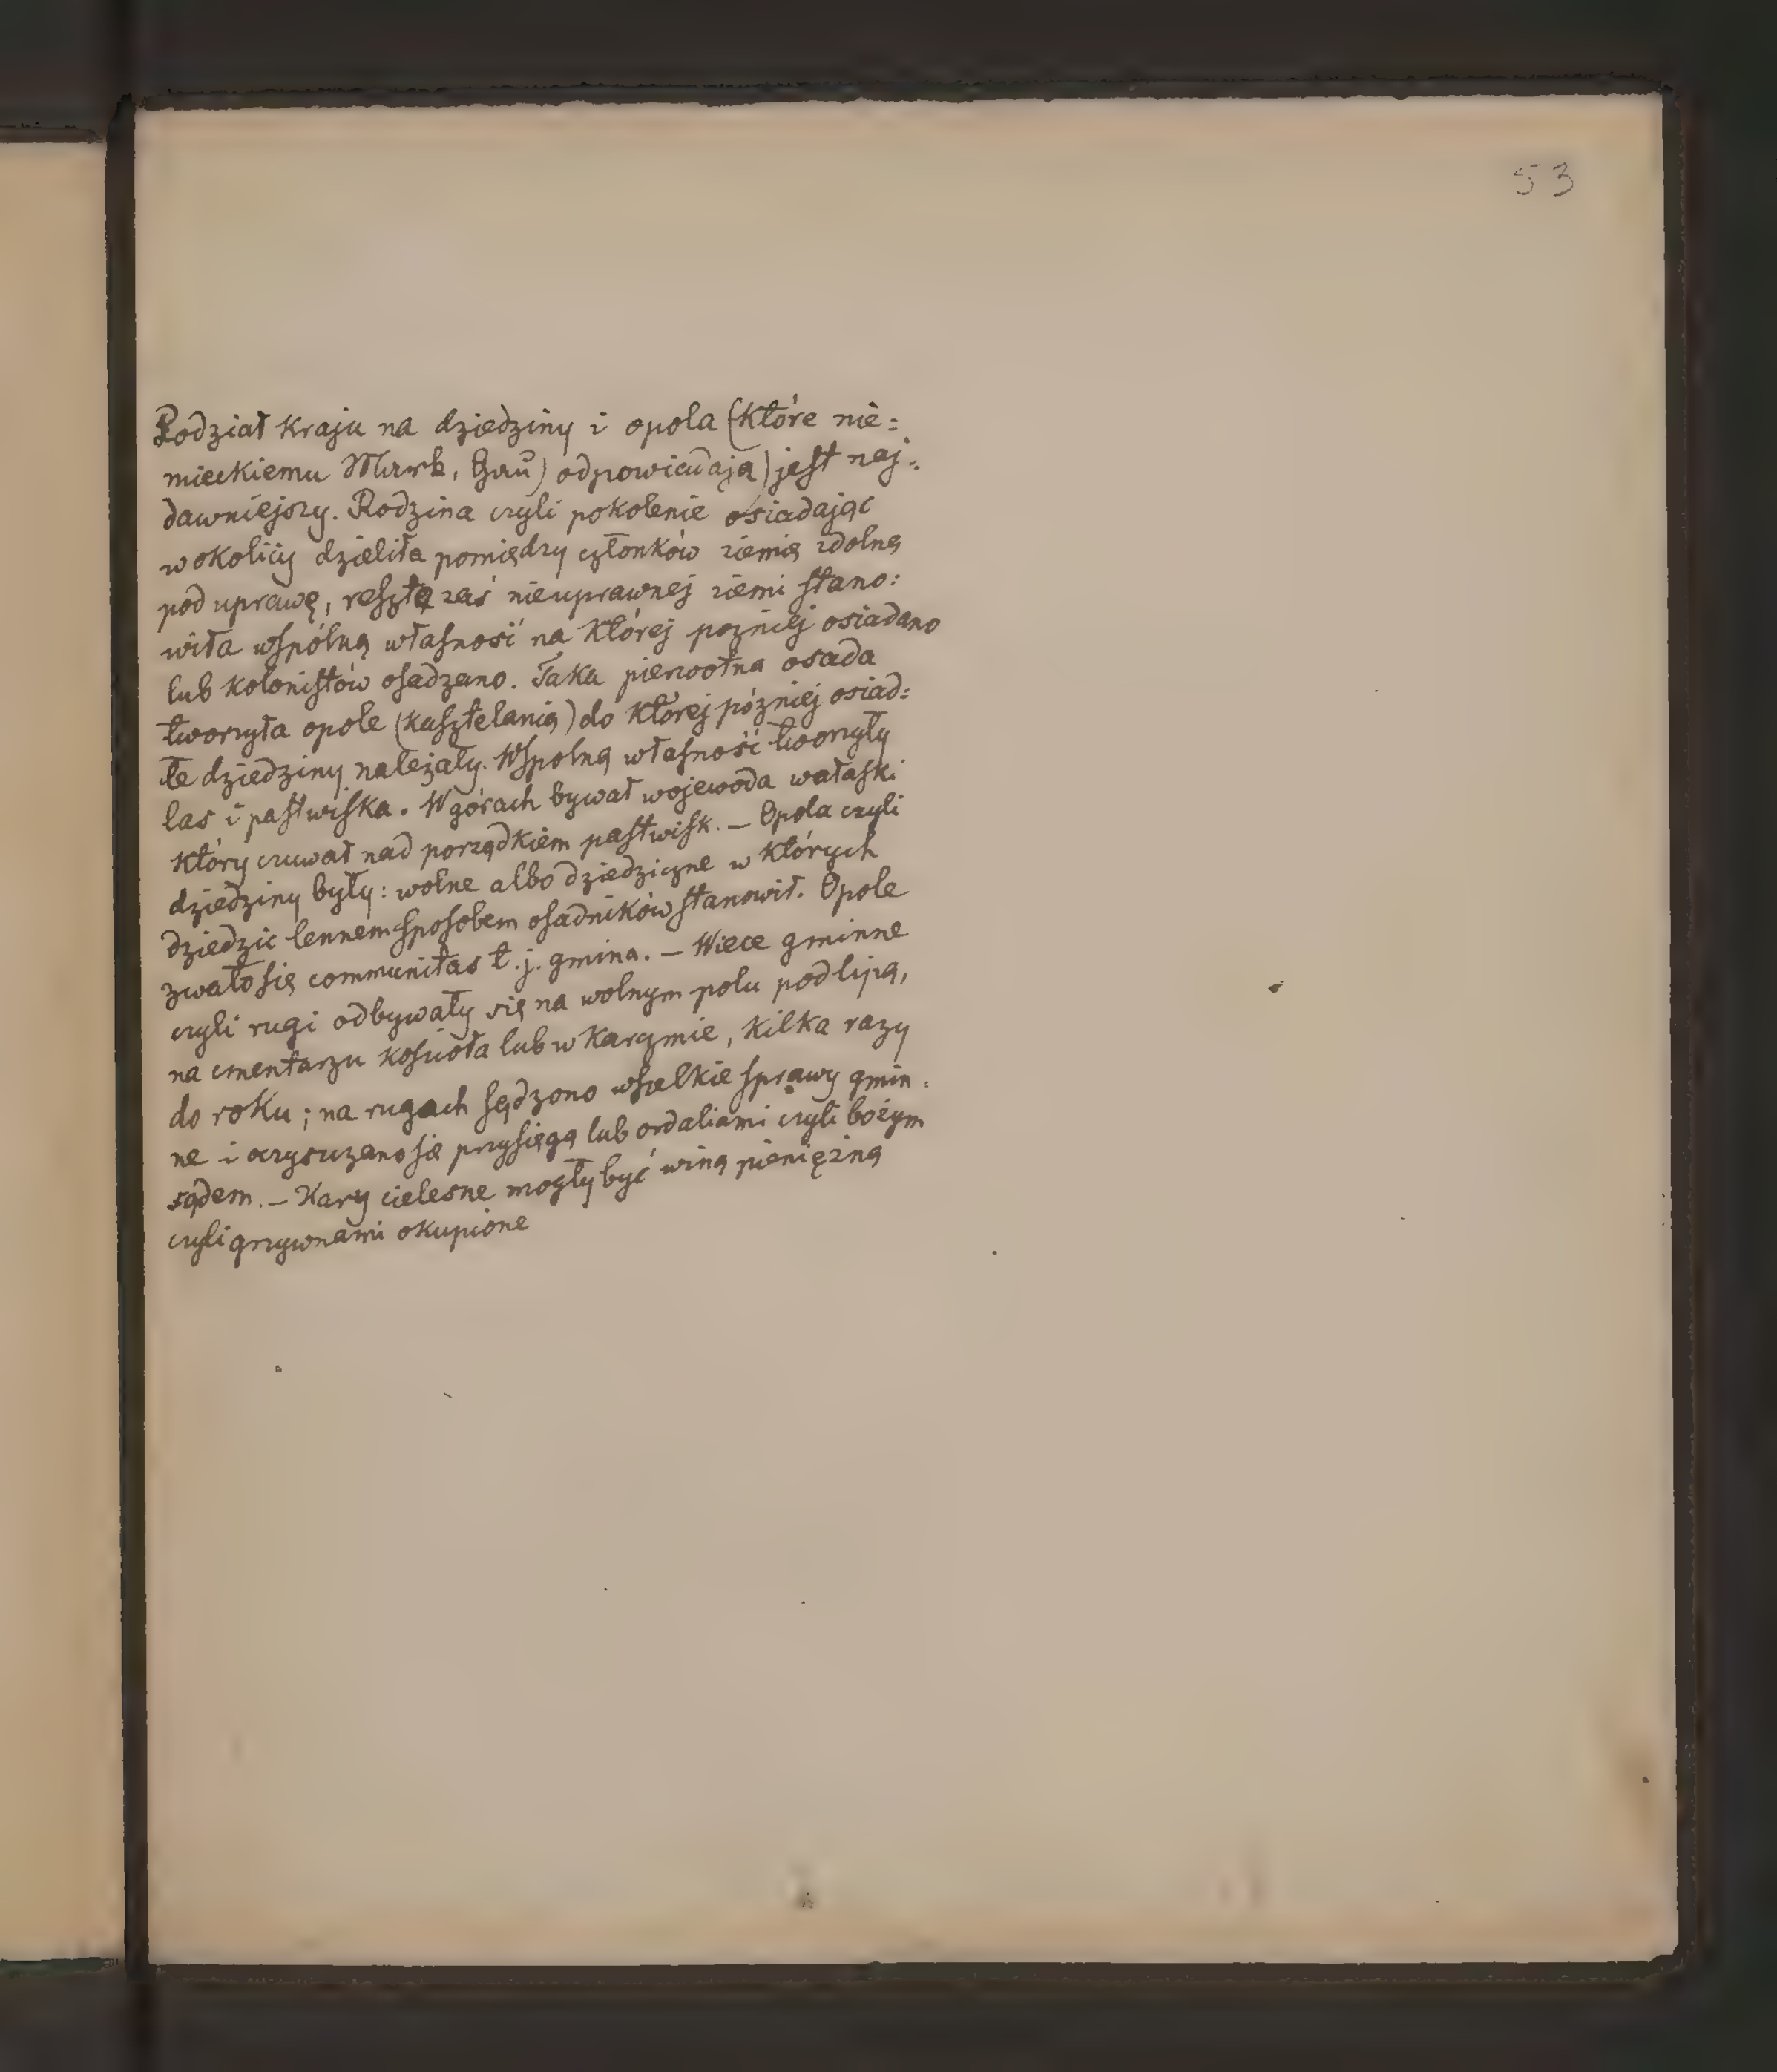 53
Podział kraju na dziedziny i opola (które nie=
mieckiemu Mark, Gau) odpowiadają) jest naj=
dawniejszy. Rodzina czyli pokolenie osiadając
w okolicy dzieliła pomiędzy członków ziemię zdolną
pod uprawę, resztę zaś nieuprawnej ziemi stano=
wiła wspólną własność na której pozniej osiadano
lub kolonistów osadzano. Taka pierwotna osada
tworzyła opole (kasztelanią) do której później osiad=
łe dziedziny należały. Wspolną własność tworzyły
las i pastwiska. W górach bywał wojewoda wałaski
który czuwał nad porządkiem pastwisk. — Opola czyli
dziedziny były: wolne albo dziedziczne w których
dziedzic lennem sposobem osadników stanowił. Opole
zwało się communitas t.j. gmina. — Wiece gminne
czyli rugi odbywały się na wolnym polu pod lipą,
na cmentarzu kościoła lub w karczmie, kilka razy
do roku; na rugach sądzono wszelkie sprawy gmin=
ne i oczyszczano się przysięgą lub ordaliami czyli bożym
sądem. — Kary cielesne mogły być winą pieniężną
czyli grzywnami okupione